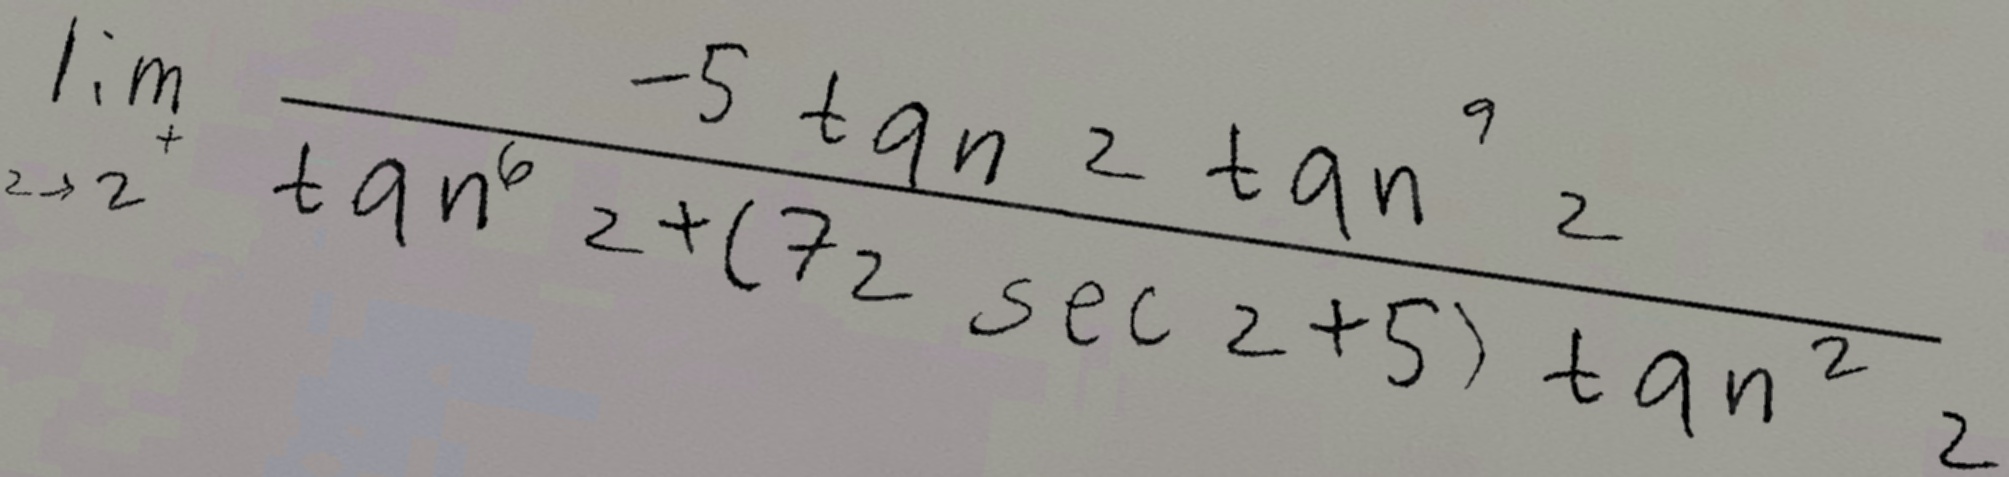 \lim_{z \to 2^+} \frac{-5 \tan z \tan^9 z}{\tan^6 z + (7z \sec z + 5) \tan^2 z}